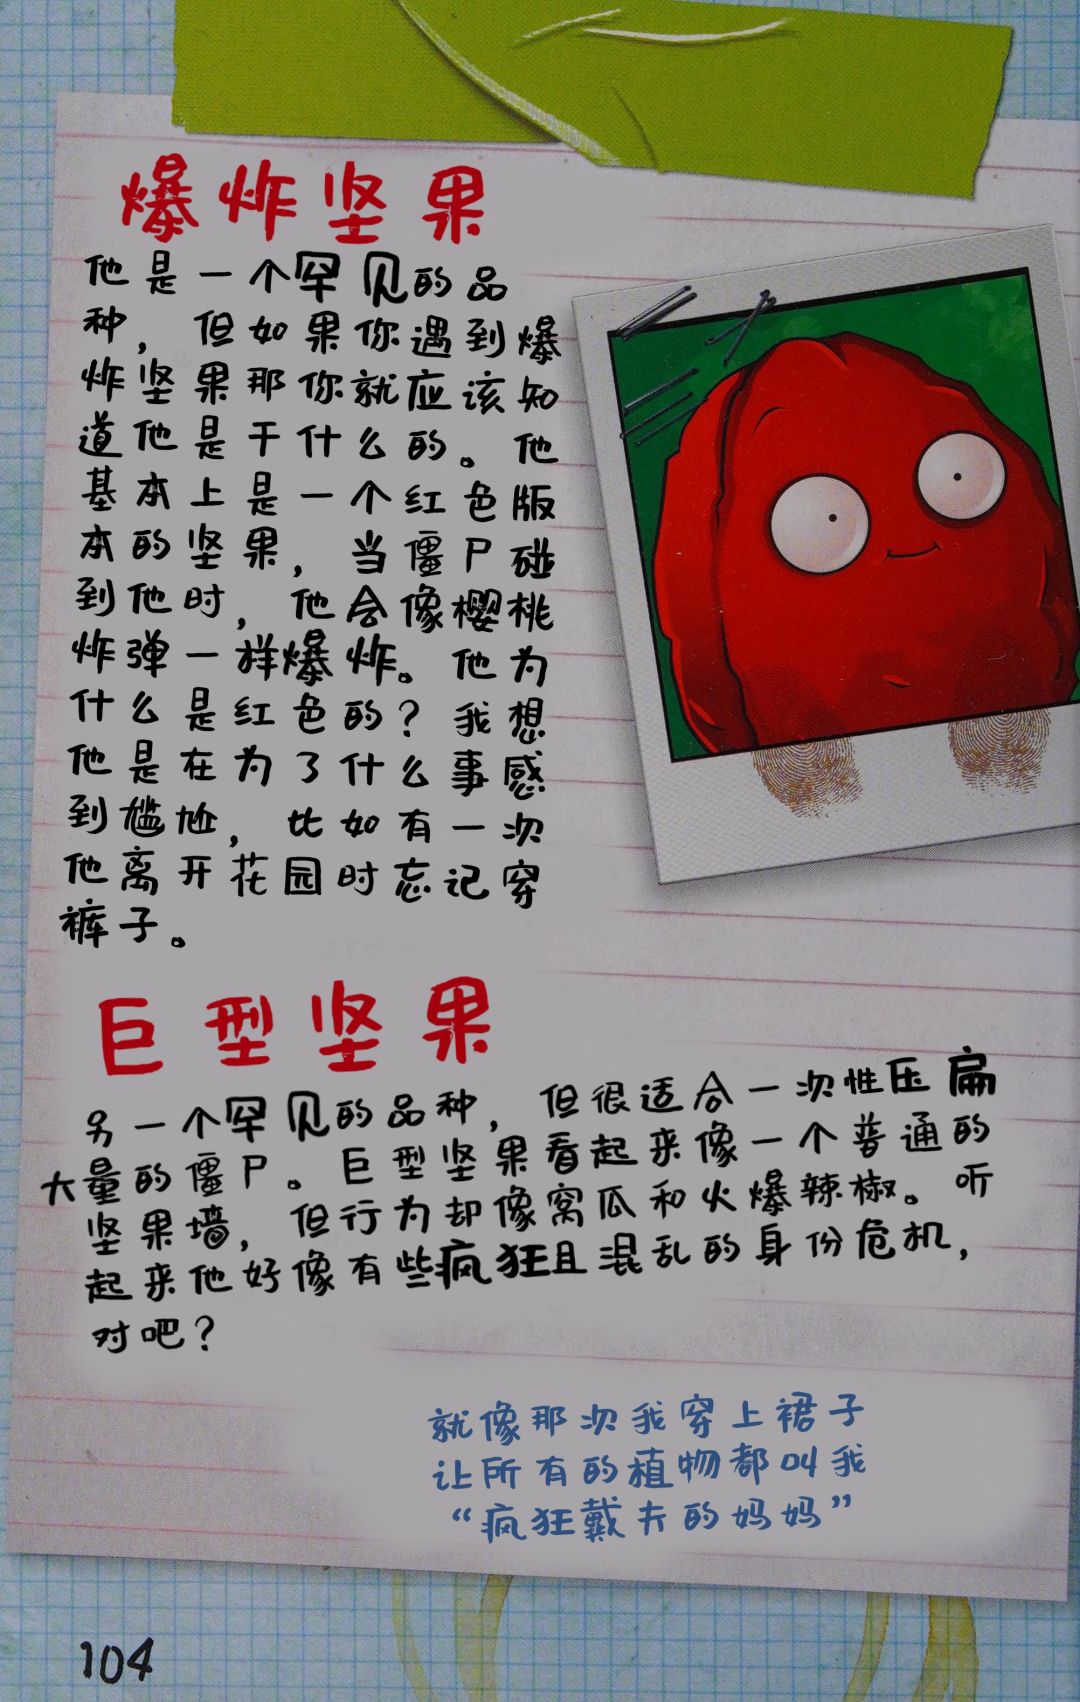 爆炸坚果
他是一个罕见的品
种，但如果你遇到爆
炸坚果那你就应该知
道他是干什么的。他
基本上是一个红色版
本的坚果，当僵尸碰
到他时，他会像樱桃
炸弹一样爆炸。他为
什么是红色的？我想
他是在为了什么事感
到尴尬，比如有一次
他离开花园时忘记穿
裤子。
巨型坚果
另一个罕见的品种，但很适合一次性压扁
大量的僵尸。巨型坚果看起来像一个普通的
坚果墙，但行为却像窝瓜和火爆辣椒。听
起来他好像有些疯狂且混乱的身份危机，
对吧？
就像那次我穿上裙子
让所有的植物都叫我
“疯狂戴夫的妈妈”
104